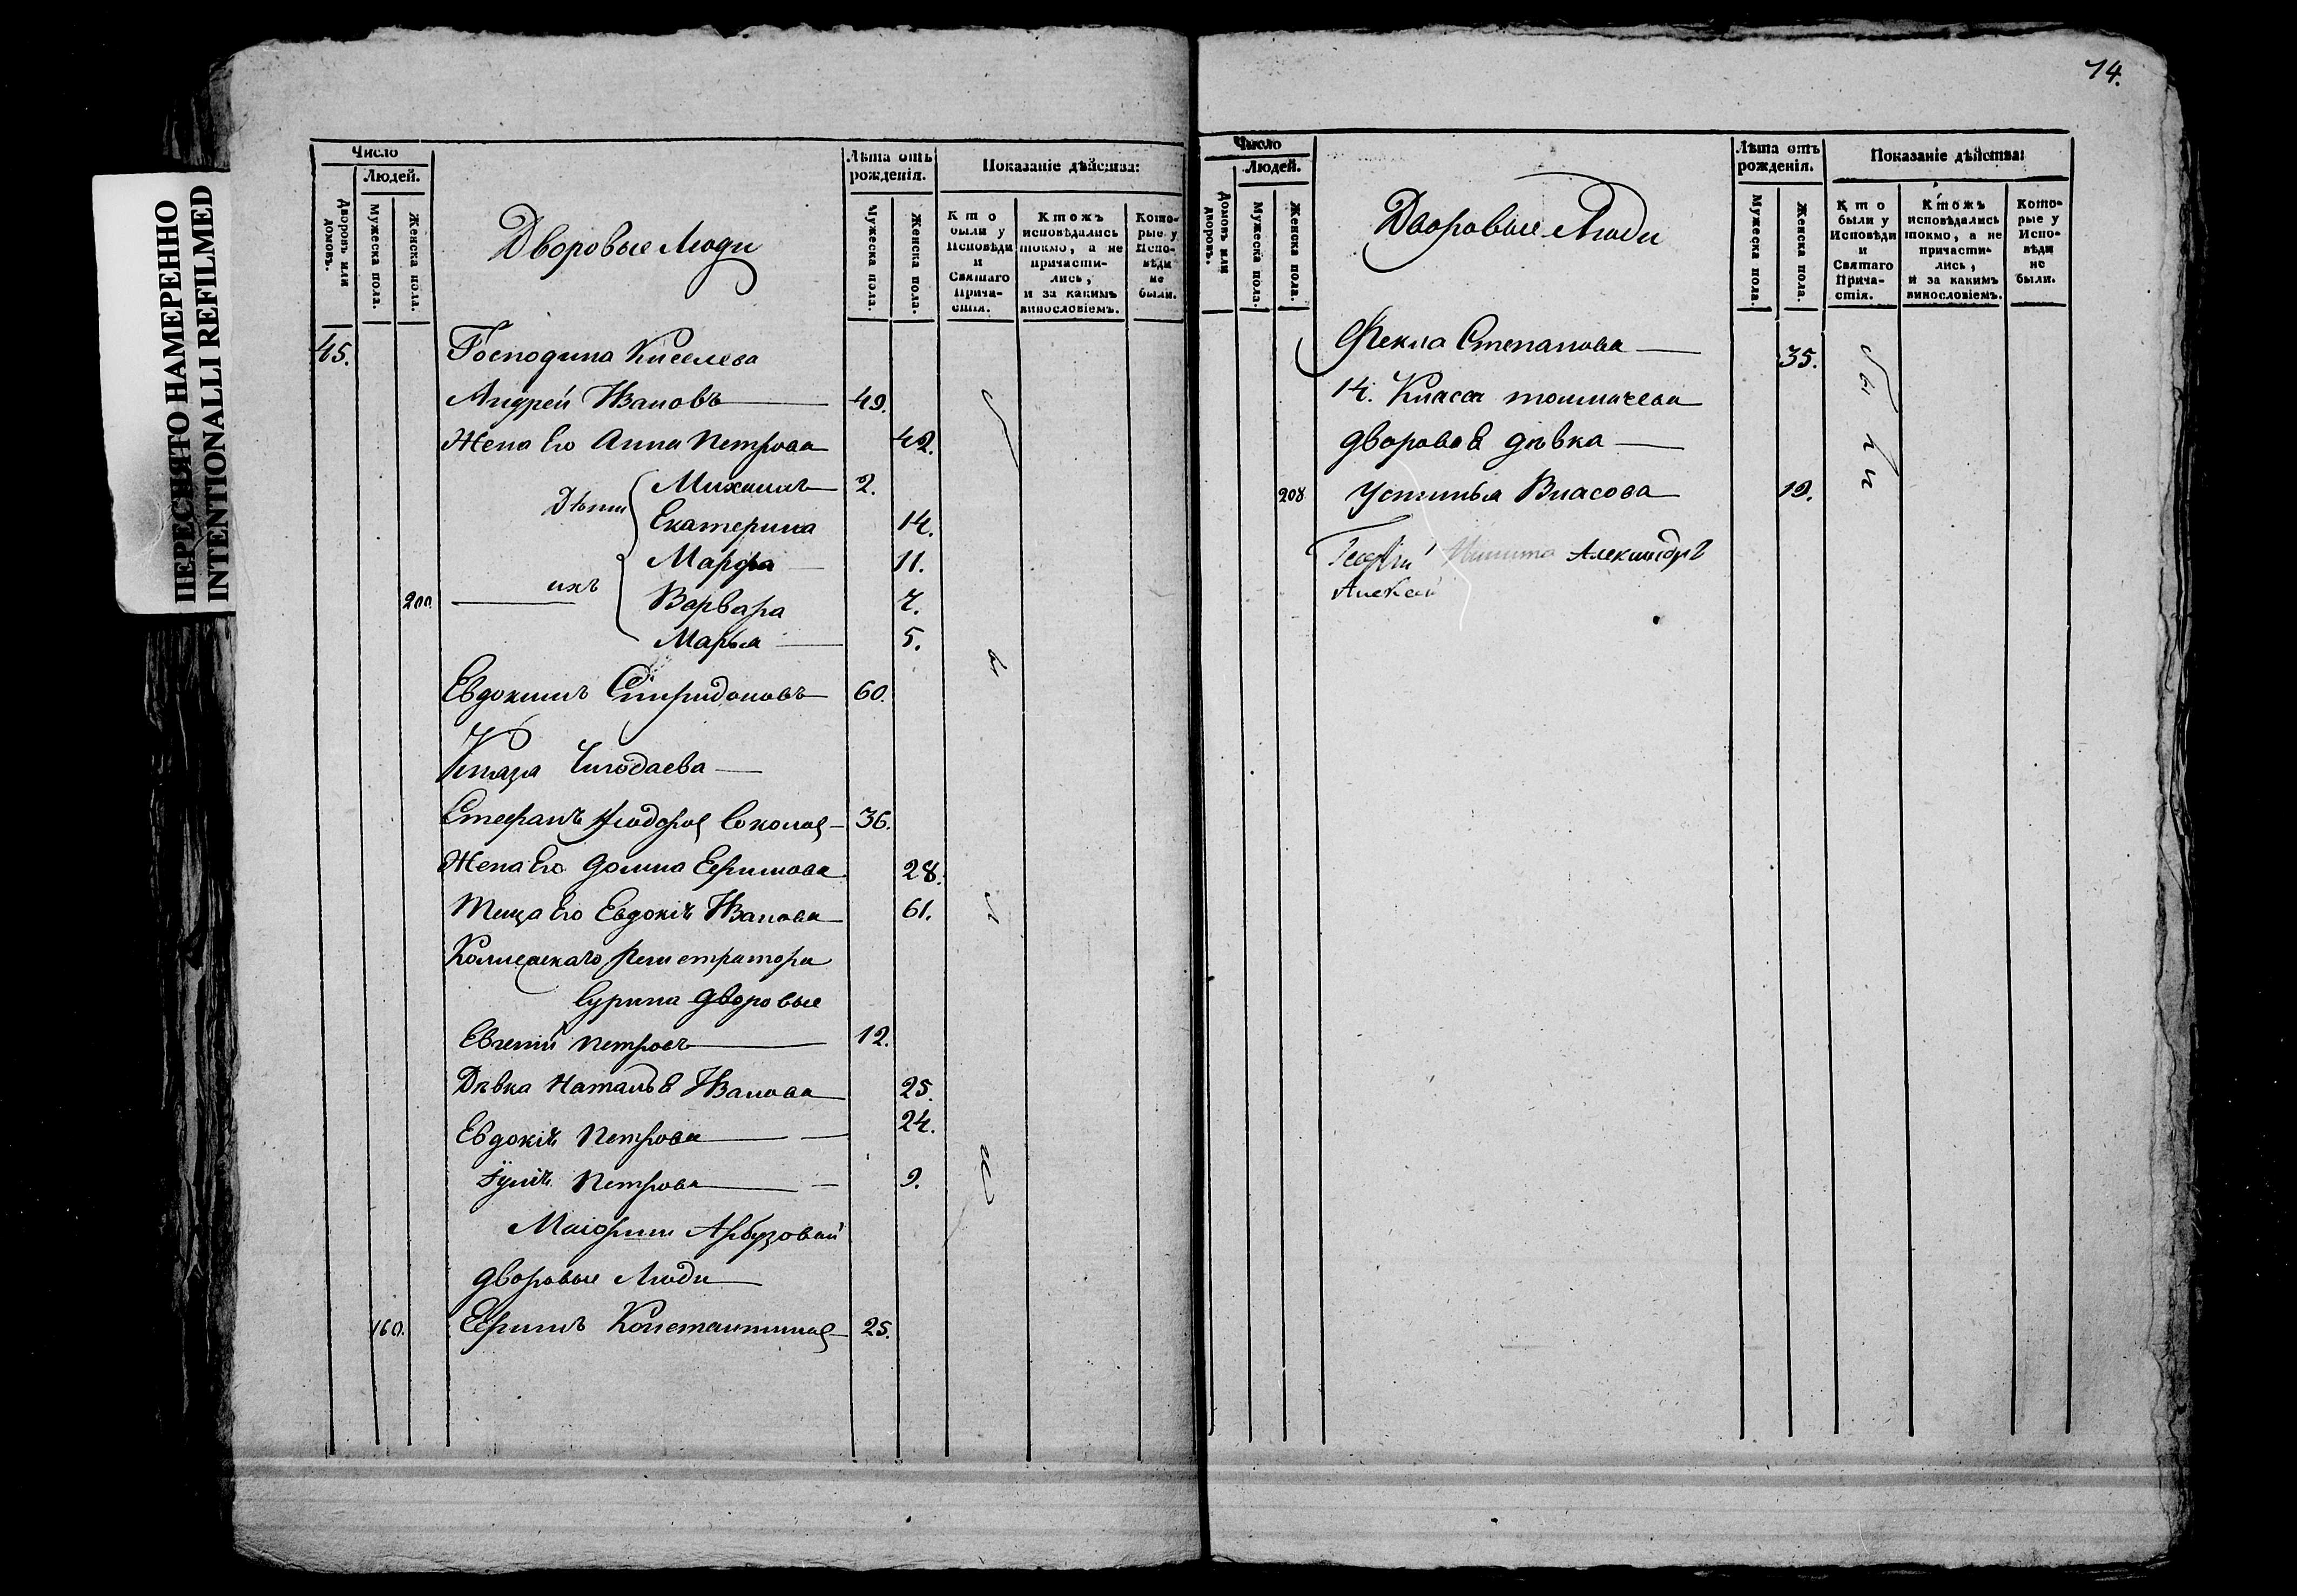 ПЕРЕСНЯТО НАМЕРЕННО
INTENTIONALLI REFILMED
Число
Людей.
Дворовъ или домовъ.
Мужеска пола.
Женска пола.
Дворовые Люди
Лѣта отъ рожденія.
Мужеска пола.
Женска пола.
Показаніе дѣйства:
Кто были у Исповѣди и Святаго Прича-стія.
Ктожъ исповѣдались токмо, а не причасти-лись, и за какимъ винословіемъ.
Кото-рые у Испо-вѣди не были.
45. Господина Киселева
Андрей Ивановъ 49.
Жена Его Анна Петрова 42.
Дѣти Михаилъ 2.
Екатерина 14.
Марфа 11.
200. ихъ Варвара 7.
Марья 5.
Евдокимъ Спиридоновъ 60.
Князя Чегодаева
Стефанъ Ѳеодоровъ Соколовъ 36.
Жена Его Домна Ефимова 28.
Теща Его Евдокія Иванова 61.
Коллежскаго Регистратора
Сурина дворовые
Евгений Петровъ 12.
Дѣвка Наталья Иванова 25.
Евдокія Петрова 24.
Іулія Петрова 9.
Маіорши Арбузовой
дворовые Люди
160. Ефимъ Константиновъ 25.
14.
Число
Людей.
Домовъ или дворовъ.
Мужеска пола.
Женска пола.
Дворовые Люди
Лѣта отъ рожденія.
Мужеска пола.
Женска пола.
Показаніе дѣйства:
Кто были у Исповѣди и Святаго Прича-стія.
Ктожъ исповѣдались токмо, а не причасти-лись, и за какимъ винословіемъ.
Кото-рые у Испо-вѣди не были.
Фекла Степанова 35.
14. Класса толмачева
дворовая дѣвка
208 Устинья Власова 19.
были
Георгій Никита Александръ
Алексей